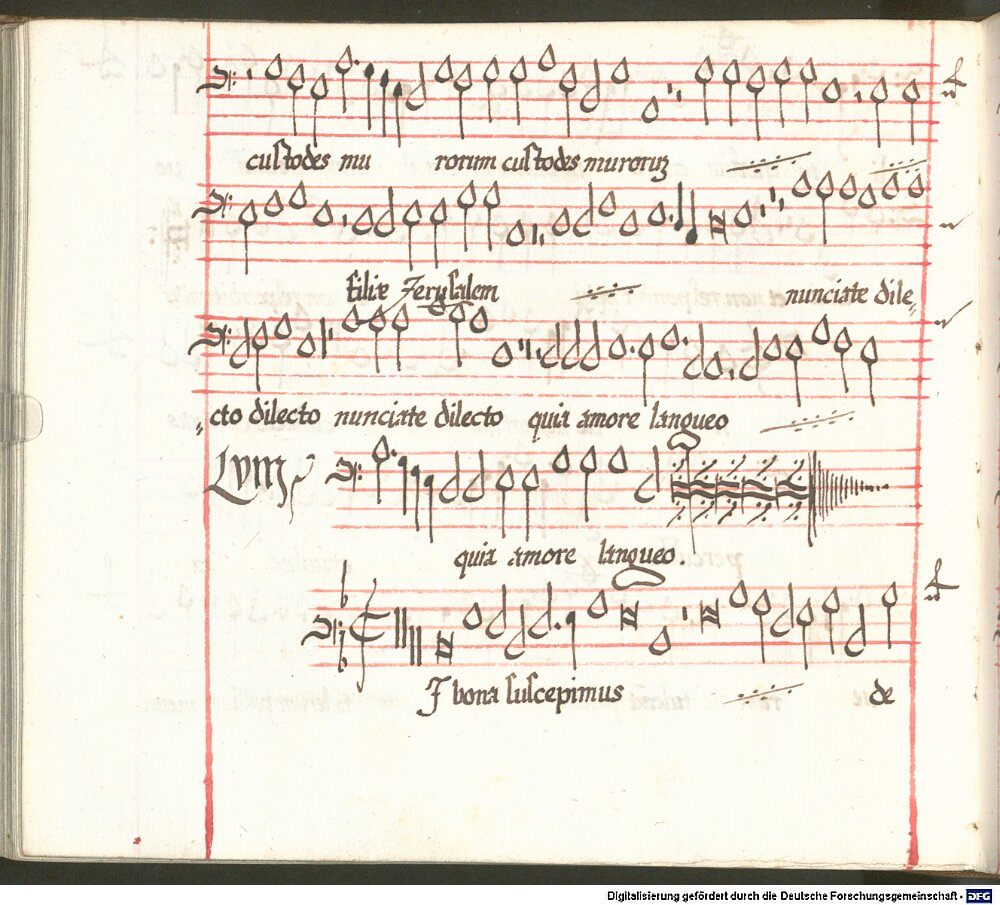 custodes mu rorum custodes murorum
filiæ Jerusalem nunciate dile„
„cto dilecto nunciate dilecto quia amore langueo
quia amore langueo.
Si bona suscepimus de
Digitalisierung gefördert durch die Deutsche Forschungsgemeinschaft - DFG